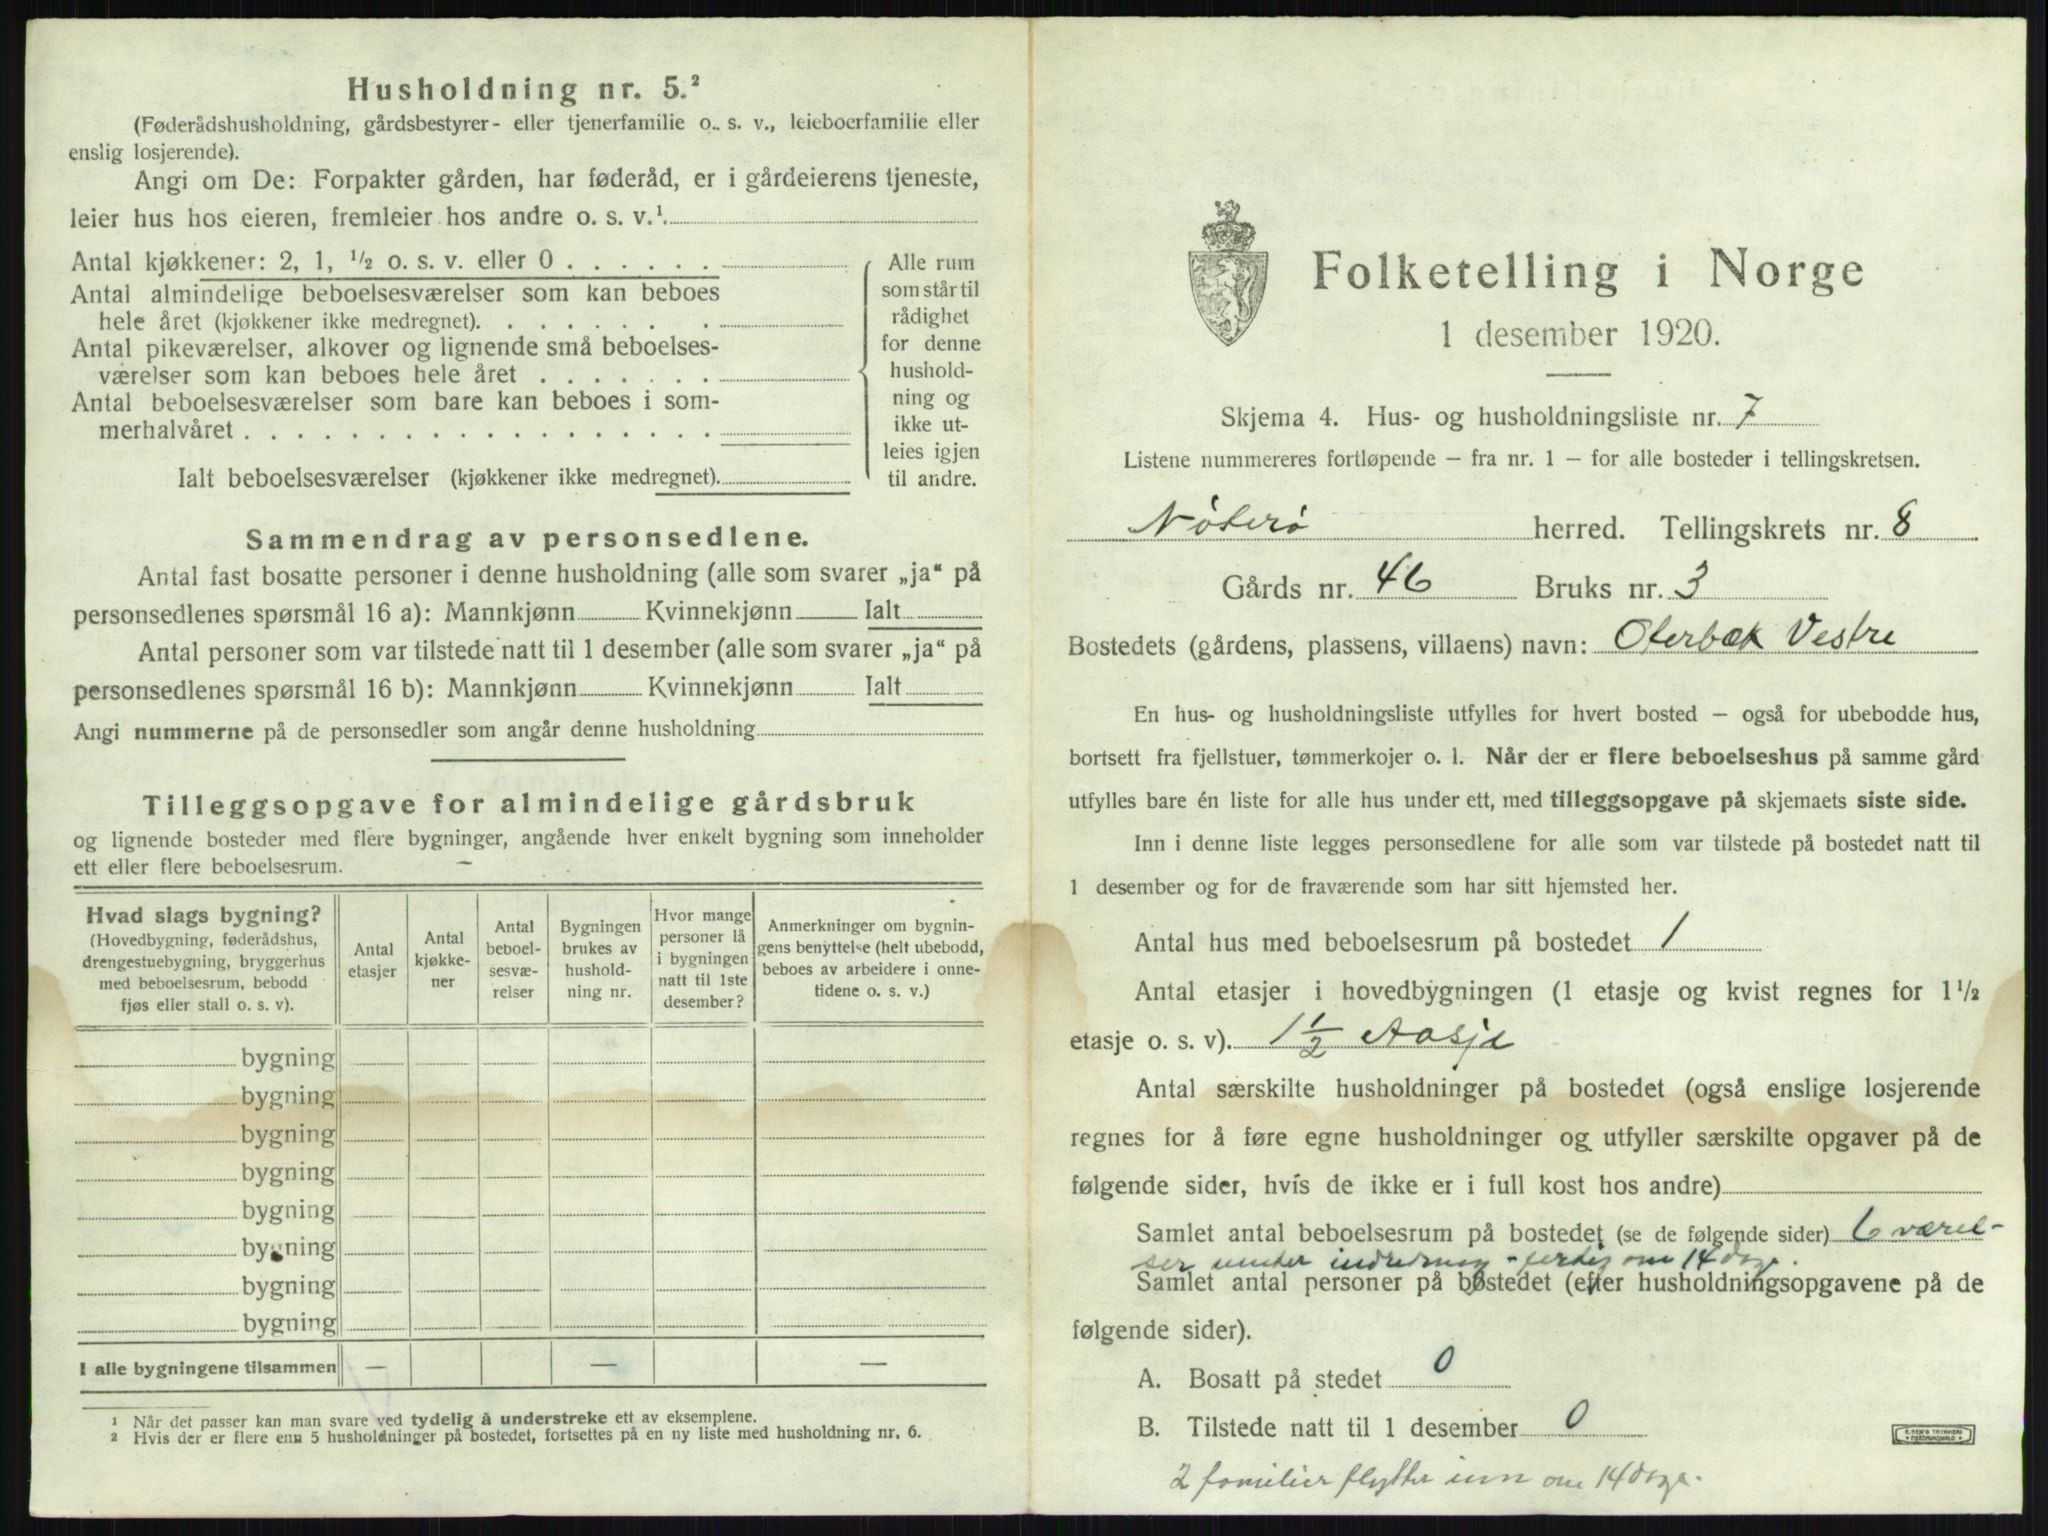 Husholdning nr. 5.²
(Føderådshusholdning, gårdsbestyrer- eller tjenerfamilie o. s. v., leieboerfamilie eller
enslig losjerende).
Angi om De: Forpakter gården, har føderåd, er i gårdeierens tjeneste,
leier hus hos eieren, fremleier hos andre o. s. v.¹
Antal kjøkkener: 2, 1, ½ o. s. v. eller 0
Antal almindelige beboelsesværelser som kan beboes
hele året (kjøkkener ikke medregnet).
Antal pikeværelser, alkover og lignende små beboelses-
værelser som kan beboes hele året
Antal beboelsesværelser som bare kan beboes i som-
merhalvåret
Ialt beboelsesværelser (kjøkkener ikke medregnet).
Alle rum
som står til
rådighet
for denne
hushold-
ning og
ikke ut-
leies igjen
til andre.
Sammendrag av personsedlene.
Antal fast bosatte personer i denne husholdning (alle som svarer „ja“ på
personsedlenes spørsmål 16 a): Mannkjønn Kvinnekjønn Ialt
Antal personer som var tilstede natt til 1 desember (alle som svarer „ja“ på
personsedlenes spørsmål 16 b): Mannkjønn Kvinnekjønn Ialt
Angi nummerne på de personsedler som angår denne husholdning
Tilleggsopgave for almindelige gårdsbruk
og lignende bosteder med flere bygninger, angående hver enkelt bygning som inneholder
ett eller flere beboelsesrum.
Hvad slags bygning?
(Hovedbygning, føderådshus,
drengestuebygning, bryggerhus
med beboelsesrum, bebodd
fjøs eller stall o. s. v).
Antal
etasjer
Antal
kjøkke-
ner
Antal
beboel-
sesvæ-
relser
Bygningen
brukes av
hushold-
ning nr.
Hvor mange
personer lå
i bygningen
natt til 1ste
desember?
Anmerkninger om bygnin-
gens benyttelse (helt ubebodd,
beboes av arbeidere i onne-
tidene o. s. v.)
bygning
bygning
bygning
bygning
bygning
bygning
bygning
bygning
I alle bygningene tilsammen — — —
¹ Når det passer kan man svare ved tydelig å understreke ett av eksemplene.
² Hvis der er flere enn 5 husholdninger på bostedet, fortsettes på en ny liste med husholdning nr. 6.
Folketelling i Norge
1 desember 1920.
Skjema 4. Hus- og husholdningsliste nr. 7
Listene nummereres fortløpende – fra nr. 1 – for alle bosteder i tellingskretsen.
Nøterø herred. Tellingskrets nr. 8
Gårds nr. 46 Bruks nr. 3
Bostedets (gårdens, plassens, villaens) navn: Oterbæk Vestre
En hus- og husholdningsliste utfylles for hvert bosted – også for ubebodde hus,
bortsett fra fjellstuer, tømmerkojer o. l. Når der er flere beboelseshus på samme gård
utfylles bare én liste for alle hus under ett, med tilleggsopgave på skjemaets siste side.
Inn i denne liste legges personsedlene for alle som var tilstede på bostedet natt til
1 desember og for de fraværende som har sitt hjemsted her.
Antal hus med beboelsesrum på bostedet 1
Antal etasjer i hovedbygningen (1 etasje og kvist regnes for 1½
etasje o. s. v). 1½ Aasje
Antal særskilte husholdninger på bostedet (også enslige losjerende
regnes for å føre egne husholdninger og utfyller særskilte opgaver på de
følgende sider, hvis de ikke er i full kost hos andre)
Samlet antal beboelsesrum på bostedet (se de følgende sider) 6 værel-
ser under indredning – ferdig om 14 dage.
Samlet antal personer på bostedet (efter husholdningsopgavene på de
følgende sider).
A. Bosatt på stedet 0
B. Tilstede natt til 1 desember 0
2 familier flytter inn om 14 dage.